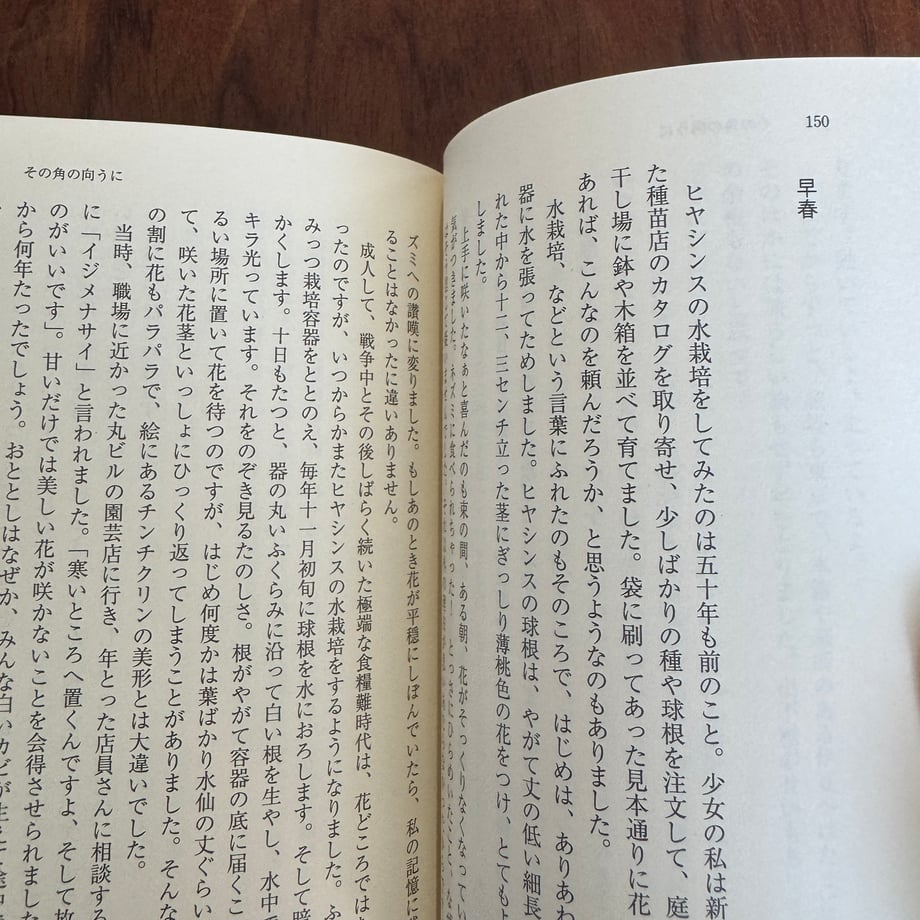 150
早春
ヒヤシンスの水栽培をしてみたのは五十年も前のこと。少女の私は新
た種苗店のカタログを取り寄せ、少しばかりの種や球根を注文して、庭
干し場に鉢や木箱を並べて育てました。袋に刷ってあった見本通りに花
あれば、こんなのを頼んだだろうか、と思うようなのもありました。
水栽培、などという言葉にふれたのもそのころで、はじめは、ありあわ
器に水を張ってためしました。ヒヤシンスの球根は、やがて丈の低い細長
れた中から十二、三センチ立った茎にぎっしり薄桃色の花をつけ、とてもよ
しました。
上手に咲いたなぁと喜んだのも束の間、ある朝、花がそっくりなくなってい
気がつきました。ネズミに食べられちゃった! とっさにひらめいた
その角の向うに
ズミへの讃嘆に変りました。もしあのとき花が平穏にしぼんでいたら、私の記憶に
ることはなかったに違いありません。
成人して、戦争中とその後しばらく続いた極端な食糧難時代は、花どころでは
ったのですが、いつからかまたヒヤシンスの水栽培をするようになりました。ふ
みっつ栽培容器をととのえ、毎年十一月初旬に球根を水におろします。そして暗
かくします。十日もたつと、器の丸いふくらみに沿って白い根を生やし、水中で
キラ光っています。それをのぞき見るたのしさ。根がやがて容器の底に届くこ
るい場所に置いて花を待つのですが、はじめ何度かは葉ばかり水仙の丈ぐらい
て、咲いた花茎といっしょにひっくり返ってしまうことがありました。そんな
の割に花もパラパラで、絵にあるチンチクリンの美形とは大違いでした。
当時、職場に近かった丸ビルの園芸店に行き、年とった店員さんに相談する
に「イジメナサイ」と言われました。「寒いところへ置くんですよ、そして
のがいいです」。甘いだけでは美しい花が咲かないことを会得させられました
から何年たったでしょう。おととしはなぜか、みんな白いカビが生えて途中